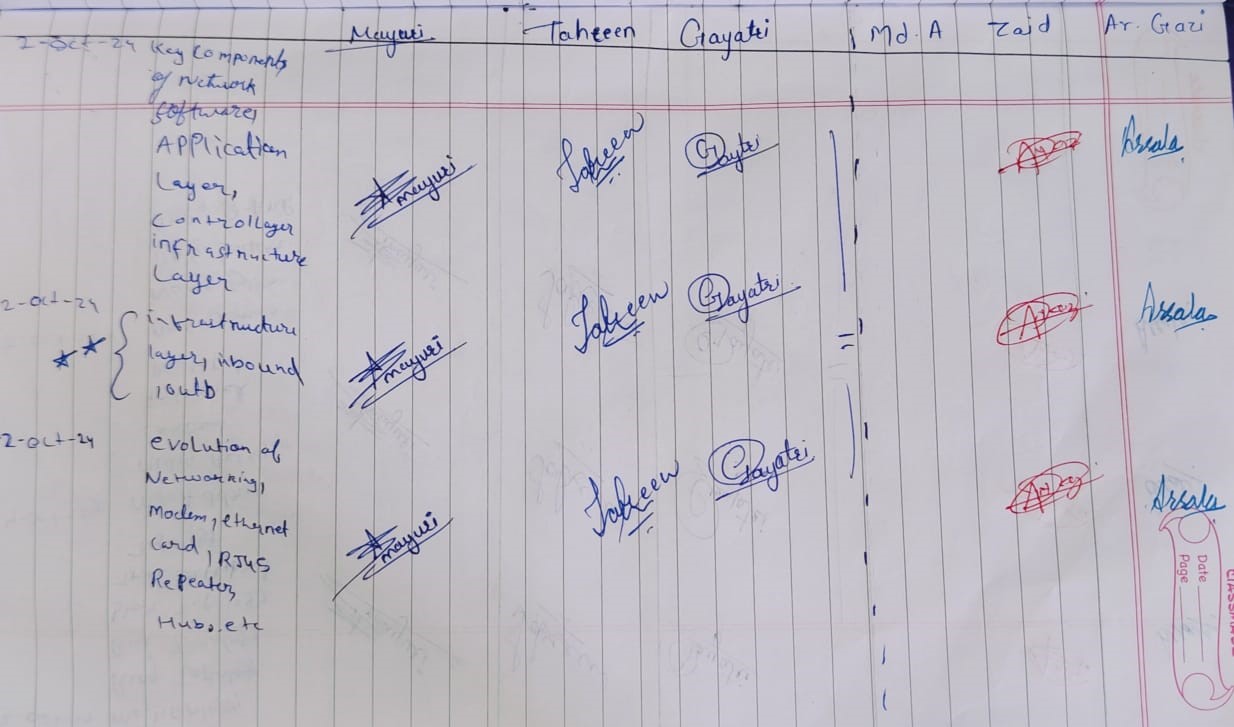 Mayuri. Taheeen Gayatri Md. A Zaid Ar. Gazi
2-Oct-24 Key Components
of network
softwares
APPlication
Layer,
Control Layer
infrastructure
Layer
mayuri Taheen Gaytri Arsala
2-oct-24
infrastructure
layer, inbound
, outb
mayuri Taheen Gayatri. Arsala
2-oct-24 evolution of
Networking,
Modem, ethernet
card, RJ45
Repeater,
Hub, etc
mayuri Taheen Gayatri Arsala
Date
Page
CLASSMATE